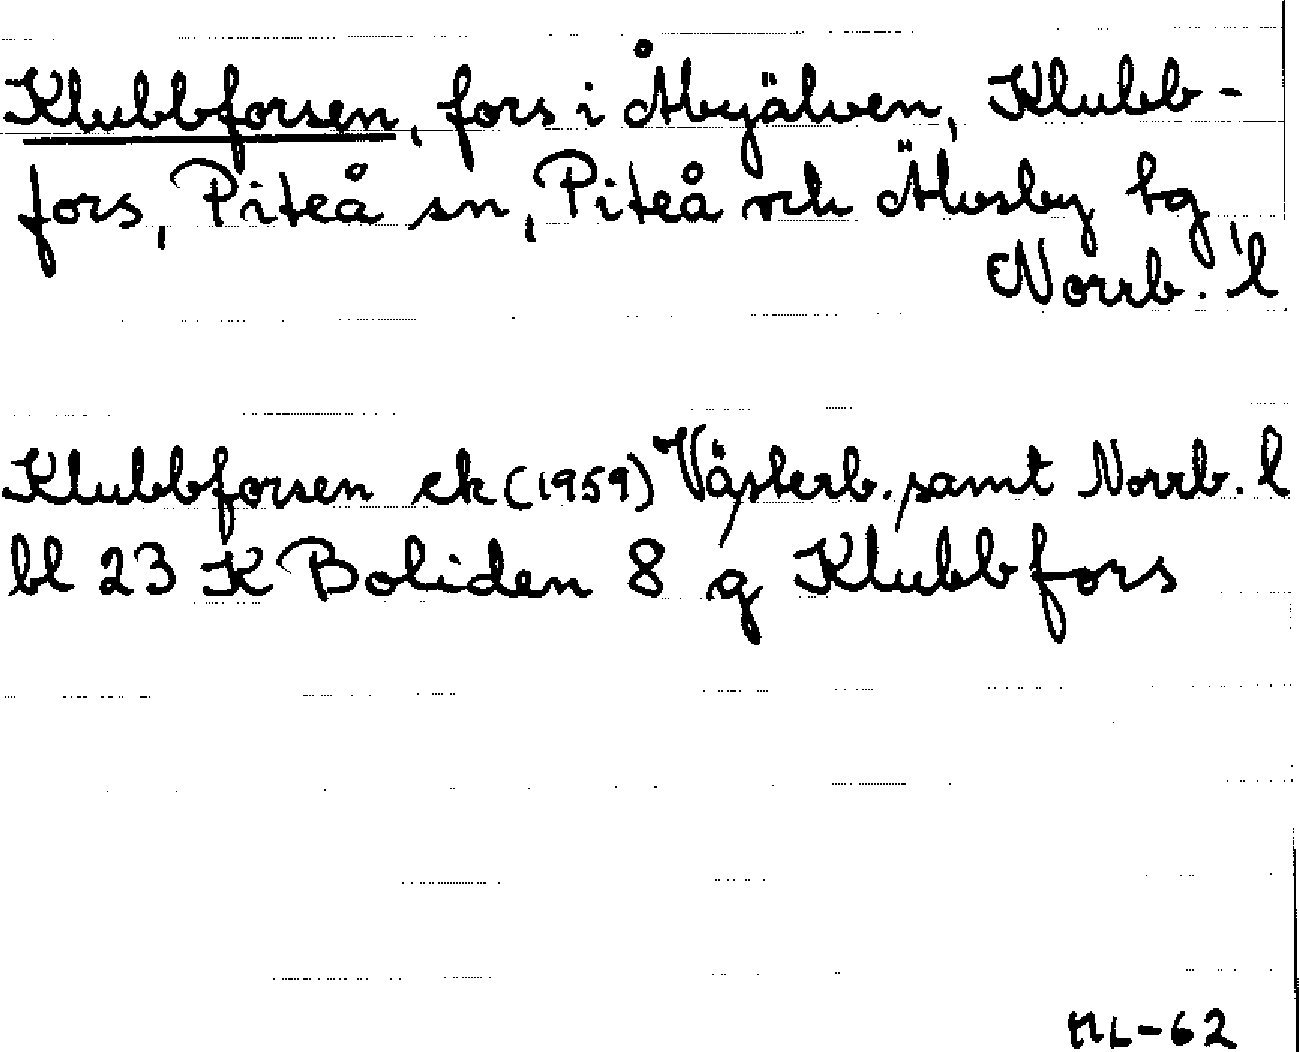 Klubbforsen, fors i Åbyälven, Klubb-
fors, Piteå sn, Piteå och Älvsby tg,
Norrb. l
Klubbforsen ek (1959) Västerb. samt Norrb. l
bl 23 K Boliden 8 g Klubbfors
ML-62